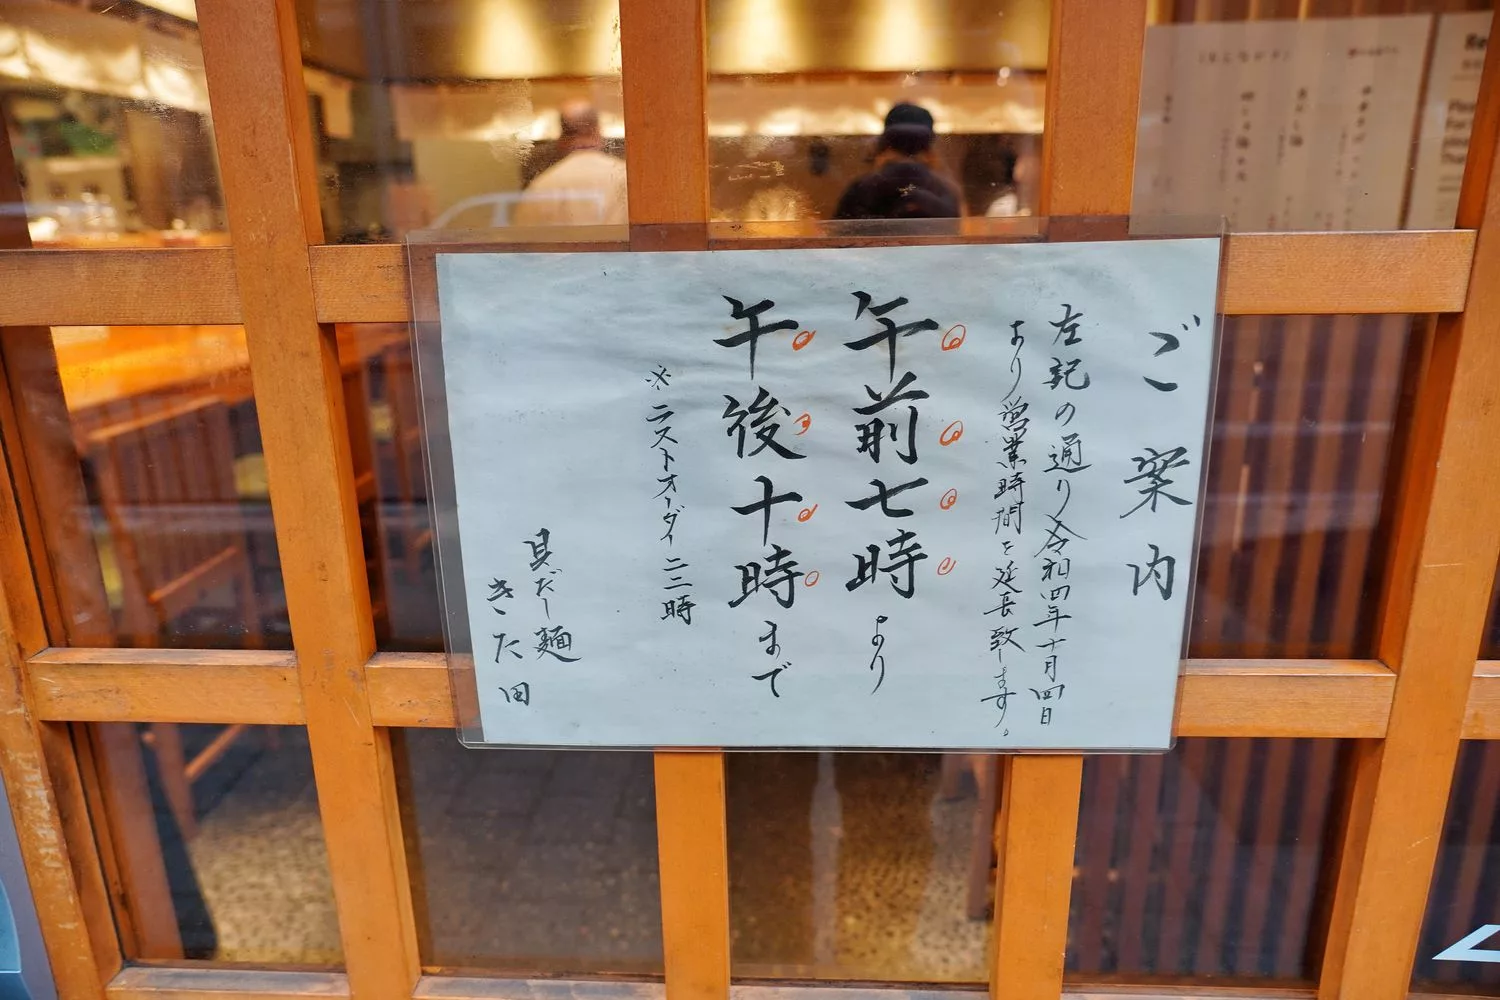 ご案内
左記の通り令和四年十月四日
より営業時間を延長致します。
午前七時より
午後十時まで
※ラストオーダー二二時
貝だし麺
きた田